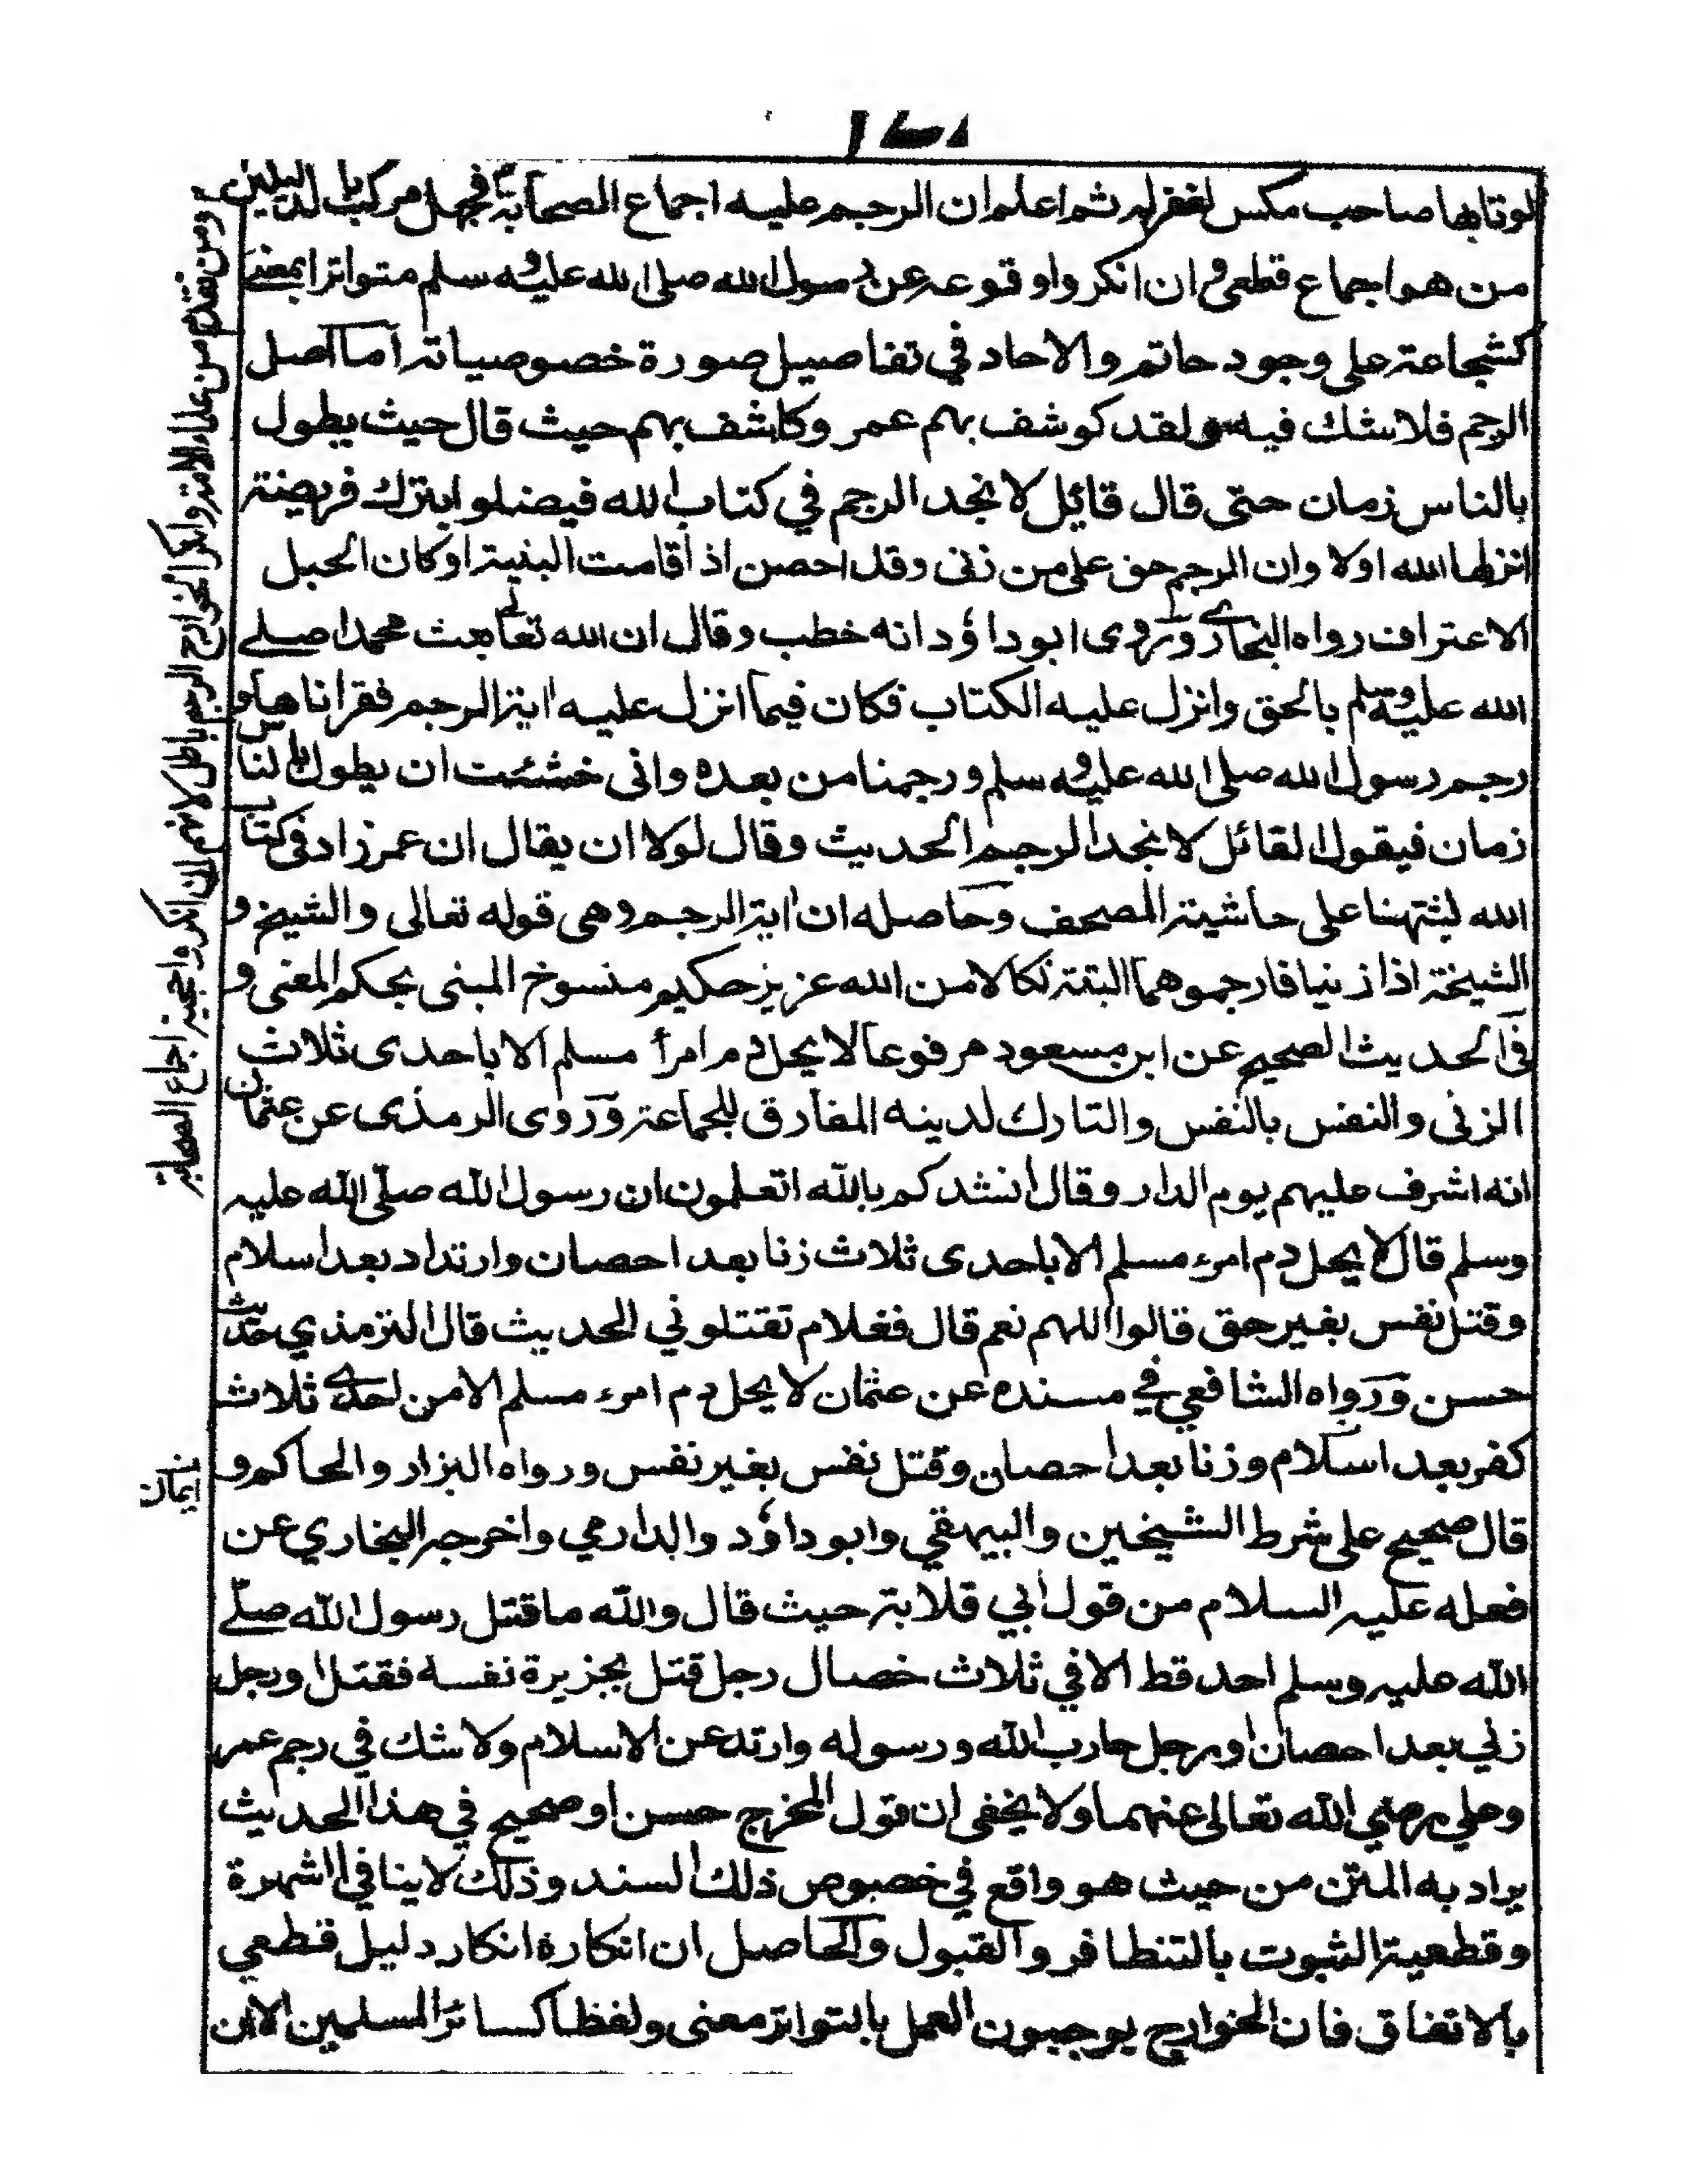 لو تابها صاحب مكس لغفر له ثم اعلم ان الرجم عليه اجماع الصحابة فجهل مركب بالدليل
من هو اجماع قطعي و ان انكروا وقوعه عن رسول الله صلى الله عليه وسلم متواترا بمعنى
كشجاعة على وجود حاتم والاحاد في تفاصيل صورة خصوصياته اما اصل
الرجم فلا شك فيه ولقد كوشف بهم عمر وكاشف بهم حيث قال حيث يطول
بالناس زمان حتى قال قائل لا نجد الرجم في كتاب الله فيضلوا بترك فريضة
انزلها الله اولا وان الرجم حق على من زنى وقد احصن اذا قامت البنية او كان الحبل
الاعتراف رواه البخاري وروى ابو داؤد انه خطب وقال ان الله تعالى بعث محمدا صلى
الله عليه وسلم بالحق وانزل عليه الكتاب فكان فيما انزل عليه اية الرجم فقراناها و
رجم رسول الله صلى الله عليه وسلم ورجمنا من بعده واني خشيت ان يطول بالناس
زمان فيقول القائل لا نجد الرجم الحديث وقال لولا ان يقال ان عمر زاد في كتاب
الله لثبتهنا على حاشية المصحف وحاصله ان اية الرجم وهي قوله تعالى والشيخ و
الشيخة اذا زنيا فارجموهما البتة نكالا من الله عزيز حكيم منسوخ المبنى بحكم المعنى و
في الحديث الصحيح عن ابن مسعود مرفوعا لا يحل دم امرأ مسلم الا باحدى ثلاث
الزنى والنفس بالنفس والتارك لدينه المفارق للجماعة وروى الرمذى عن عثمان
انه اشرف عليهم يوم الدار وقال انشدكم بالله اتعلمون ان رسول الله صلى الله عليه
وسلم قال لا يحل دم امرء مسلم الا باحدى ثلاث زنا بعد احصان وارتداد بعد اسلام
وقتل نفس بغير حق قالوا اللهم نعم قال فغلام تقتلوني الحديث قال الترمذي حديث
حسن ورواه الشافعي في مسنده عن عثمان لا يحل دم امرء مسلم الا من احدى ثلاث
كفر بعد اسلام وزنا بعد احصان وقتل نفس بغير نفس ورواه البزار والحاكم و
قال صحيح على شرط الشيخين والبيهقي وابو داؤد والدارمي واخرجه البخاري عن
فعله عليه السلام من قول ابي قلابة حيث قال والله ما قتل رسول الله صلى
الله عليه وسلم احد قط الا في ثلاث خصال رجل قتل بجزيرة نفسه فقتل او رجل
زنى بعد احصان او رجل حارب الله ورسوله وارتد عن الاسلام ولا شك في رجم عمر
وعلي رضي الله تعالى عنهما ولا يخفى ان قول المخرج حسن او صحيح في هذا الحديث
يراد به المتن من حيث هو واقع في خصوص ذلك السند وذلك لا ينافي الشهرة
وقطعية الثبوت بالتظافر والقبول والحاصل ان انكاره انكار دليل قطعي
بالاتفاق فان الخوارج يوجبون العمل بالتواتر معنى ولفظا كسائر المسلمين الا ان
ومن تقدم من علماء الامة وانكر الخوارج الرجم باطل لانهم ان انكروا حجية اجماع الصحابة
ايمان